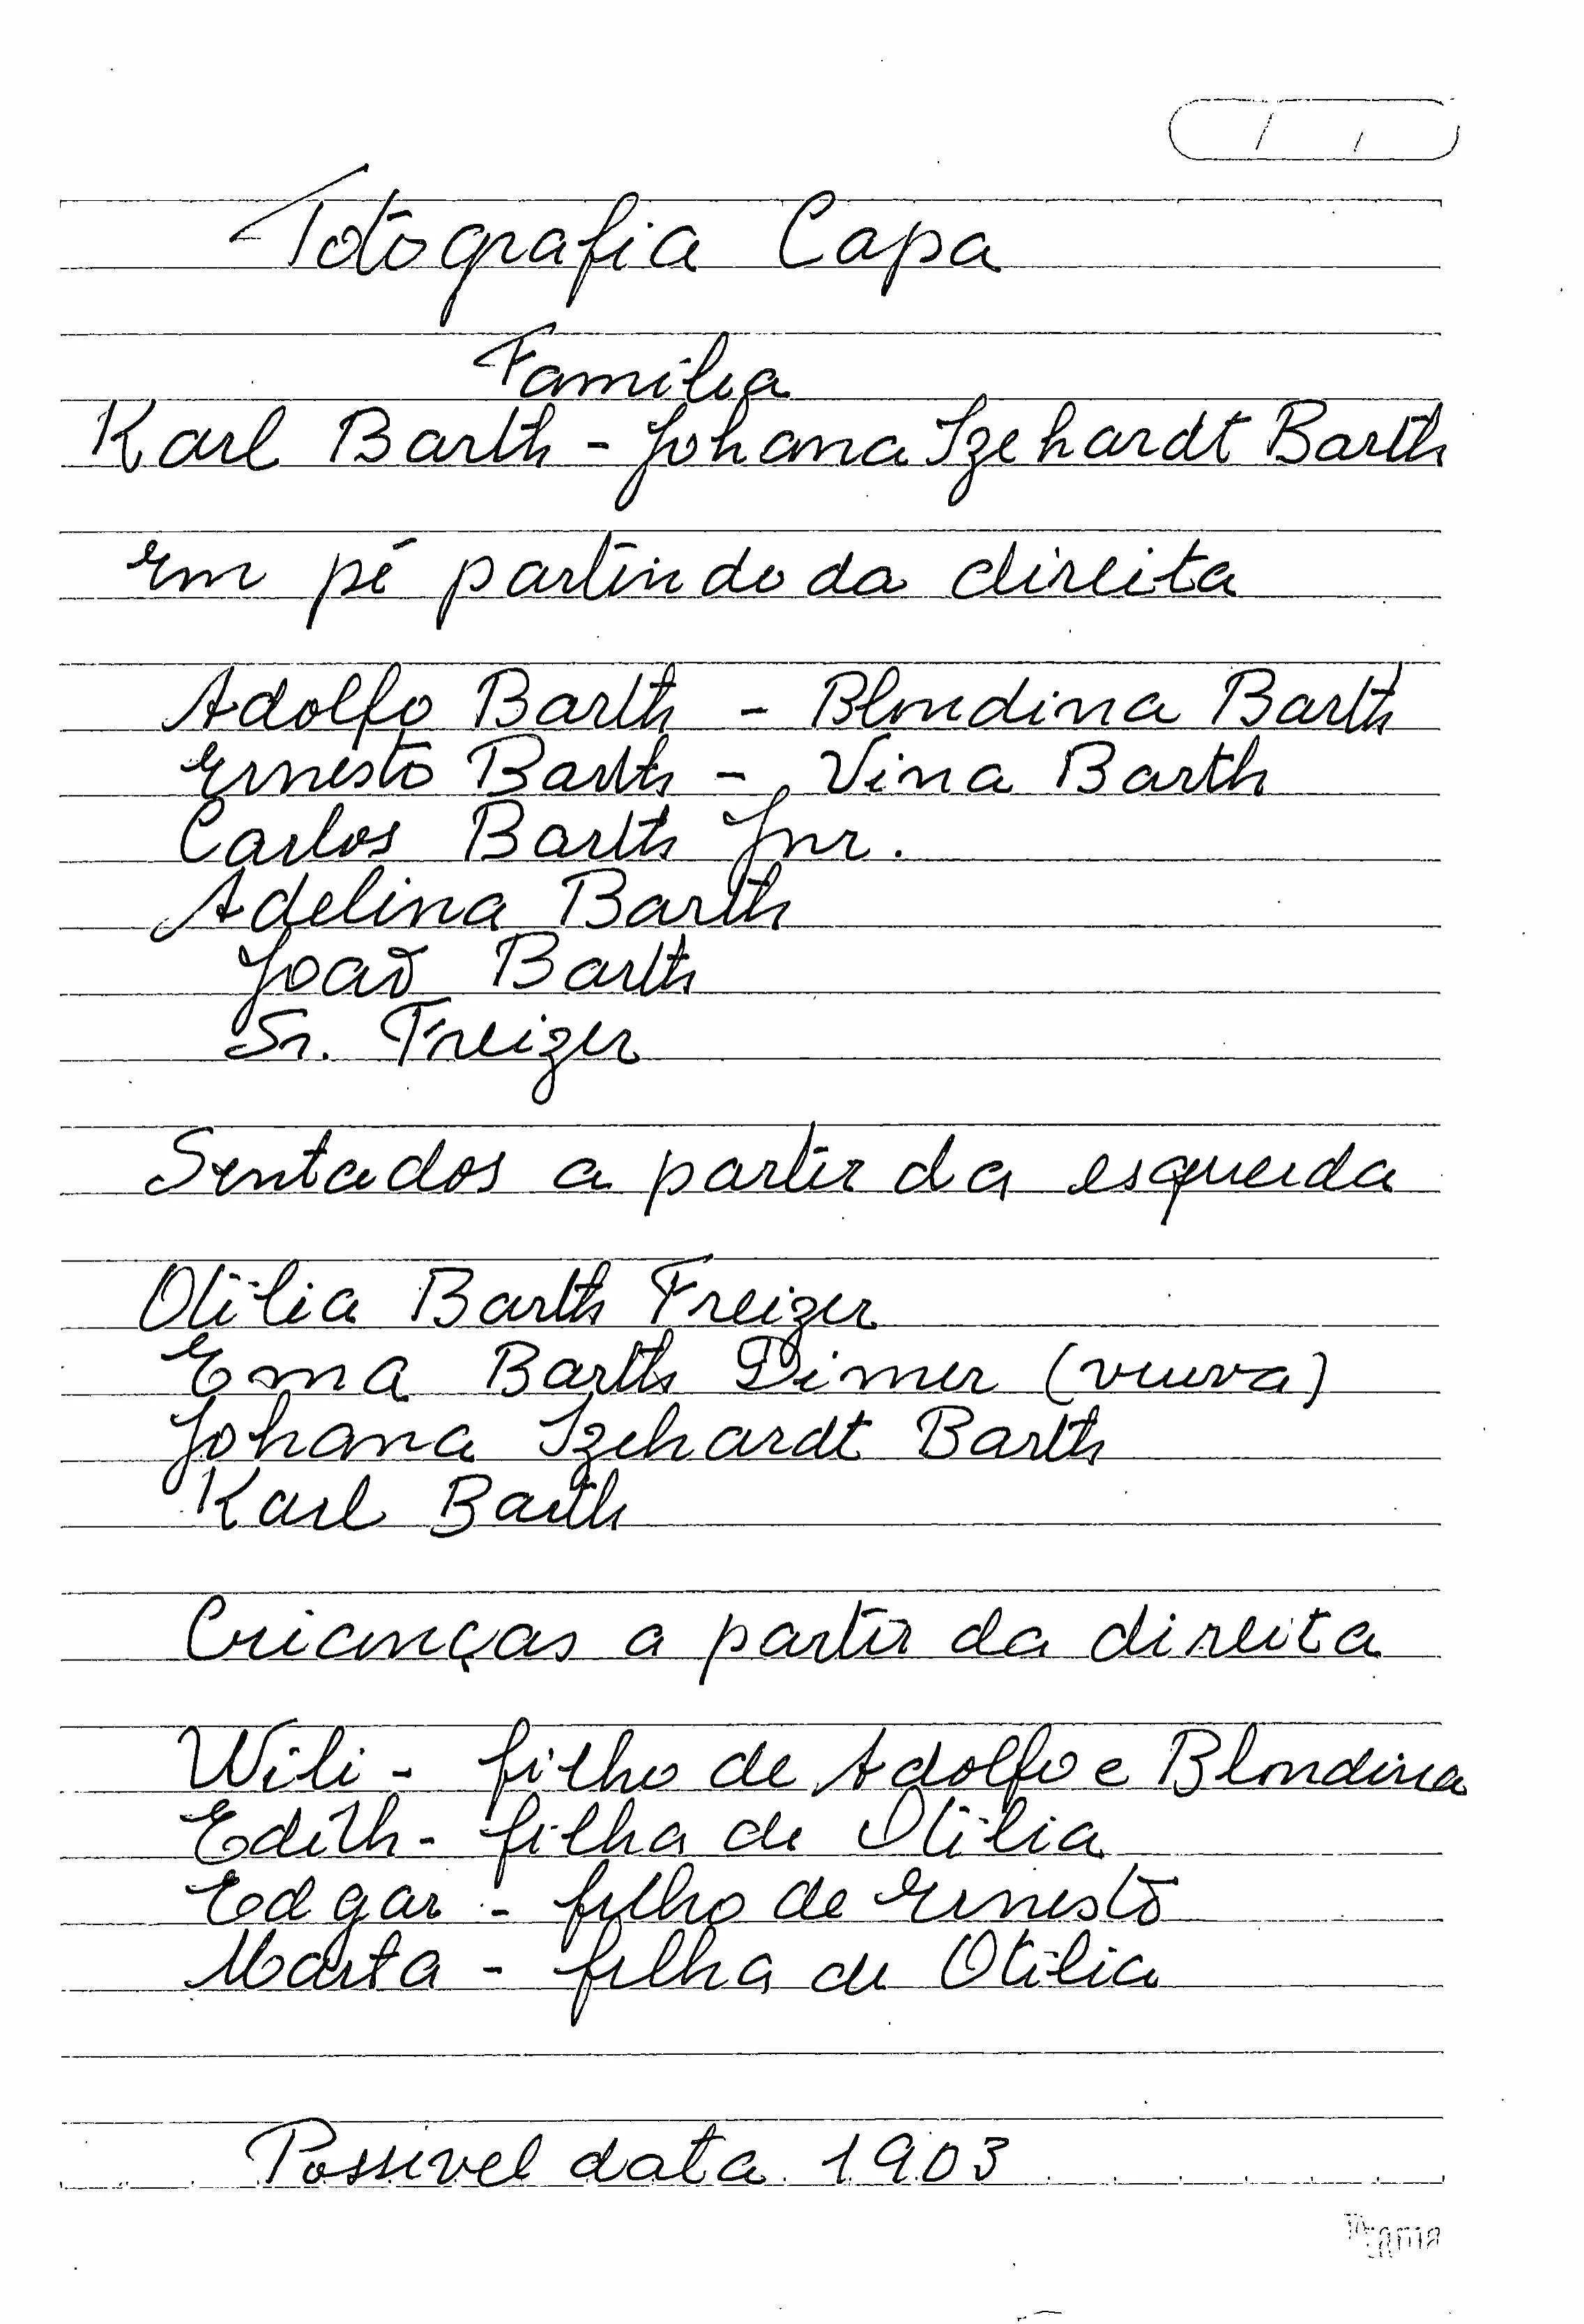 Fotografia Capa
Família
Karl Barth - Johana Izehardt Barth
Em pé partindo da direita
Adolfo Barth - Blondina Barth
Ernesto Barth - Vina Barth
Carlos Barth Jnr.
Adelina Barth
João Barth
Sr. Freizer
Sentados a partir da esquerda
Otília Barth Freizer
Ema Barth Dimer (viuva)
Johana Izehardt Barth
Karl Barth
Crianças a partir da direita
Wili - filho de Adolfo e Blondina
Edith - filha de Otília
Edgar - filho de Ernesto
Marta - filha de Otilia
Possivel data 1903